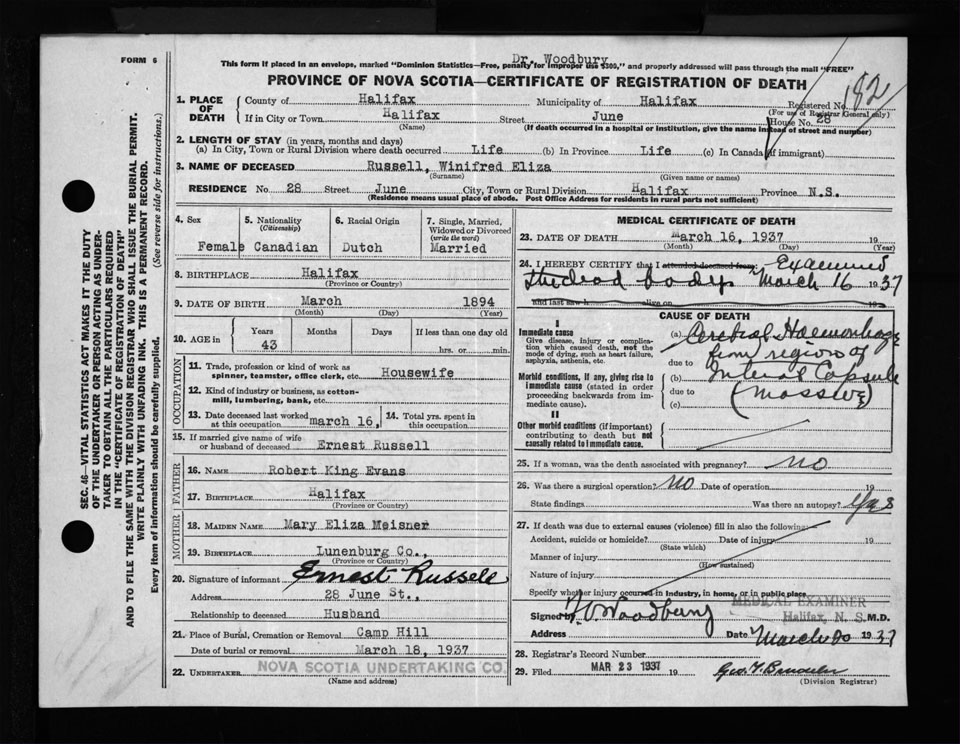 FORM 6
Dr. Woodbury
This form if placed in an envelope, marked "Dominion Statistics—Free, penalty for improper use $300," and properly addressed will pass through the mail "FREE"
PROVINCE OF NOVA SCOTIA—CERTIFICATE OF REGISTRATION OF DEATH
182
1. PLACE OF DEATH
County of Halifax Municipality of Halifax Registered No.
(For use of Registrar General only)
If in City or Town Halifax Street June House No. 28
(Name) (If death occurred in a hospital or institution, give the name instead of street and number)
2. LENGTH OF STAY (in years, months and days)
(a) In City, Town or Rural Division where death occurred Life (b) In Province Life (c) In Canada (if immigrant)
3. NAME OF DECEASED Russell, Winifred Eliza
(Surname) (Given name or names)
RESIDENCE No. 28 Street June City, Town or Rural Division Halifax Province N.S.
(Residence means usual place of abode. Post Office Address for residents in rural parts not sufficient)
4. Sex Female
5. Nationality (Citizenship) Canadian
6. Racial Origin Dutch
7. Single, Married, Widowed or Divorced (write the word) Married
8. BIRTHPLACE Halifax
(Province or Country)
9. DATE OF BIRTH March 1894
(Month) (Day) (Year)
10. AGE in Years Months Days If less than one day old
43 hrs. or min.
OCCUPATION
11. Trade, profession or kind of work as spinner, teamster, office clerk, etc. Housewife
12. Kind of industry or business, as cotton-mill, lumbering, bank, etc.
13. Date deceased last worked at this occupation march 16,
14. Total yrs. spent in this occupation
15. If married give name of wife or husband of deceased Ernest Russell
FATHER
16. NAME Robert King Evans
17. BIRTHPLACE Halifax
(Province or Country)
MOTHER
18. MAIDEN NAME Mary Eliza Meisner
19. BIRTHPLACE Lunenburg Co.,
(Province or Country)
20. Signature of informant Ernest Russell
Address 28 June St.,
Relationship to deceased Husband
21. Place of Burial, Cremation or Removal Camp Hill
Date of burial or removal March 18, 1937
22. UNDERTAKER NOVA SCOTIA UNDERTAKING CO.
(Name and address)
MEDICAL CERTIFICATE OF DEATH
23. DATE OF DEATH March 16, 1937 19
(Month) (Day) (Year)
24. I HEREBY CERTIFY that I attended deceased from Examined
the dead body March 16 1937
and last saw h alive on 19
CAUSE OF DEATH
I
Immediate cause
Give disease, injury or complication which caused death, not the mode of dying, such as heart failure, asphyxia, asthenia, etc.
(a) Cerebral Haemorrhage
due to from region of
Morbid conditions, if any, giving rise to immediate cause (stated in order proceeding backwards from immediate cause).
(b) Internal Capsule
due to (massive)
(c)
II
Other morbid conditions (if important) contributing to death but not causally related to immediate cause.
25. If a woman, was the death associated with pregnancy? no
26. Was there a surgical operation? no Date of operation 19
State findings Was there an autopsy? yes
27. If death was due to external causes (violence) fill in also the following:
Accident, suicide or homicide? Date of injury 19
(State which)
Manner of injury
(How sustained)
Nature of injury
Specify whether injury occurred in industry, in home, or in public place
MEDICAL EXAMINER
Halifax, N. S.
Signed by Woodbury M.D.
Address Date March 20 1937
28. Registrar's Record Number
29. Filed MAR 23 1937 19
(Division Registrar)
SEC. 46—VITAL STATISTICS ACT MAKES IT THE DUTY
OF THE UNDERTAKER OR PERSON ACTING AS UNDER-
TAKER TO OBTAIN ALL THE PARTICULARS REQUIRED
IN THE "CERTIFICATE OF REGISTRATION OF DEATH"
AND TO FILE THE SAME WITH THE DIVISION REGISTRAR WHO SHALL ISSUE THE BURIAL PERMIT.
WRITE PLAINLY WITH UNFADING INK. THIS IS A PERMANENT RECORD.
Every item of information should be carefully supplied. (See reverse side for instructions.)